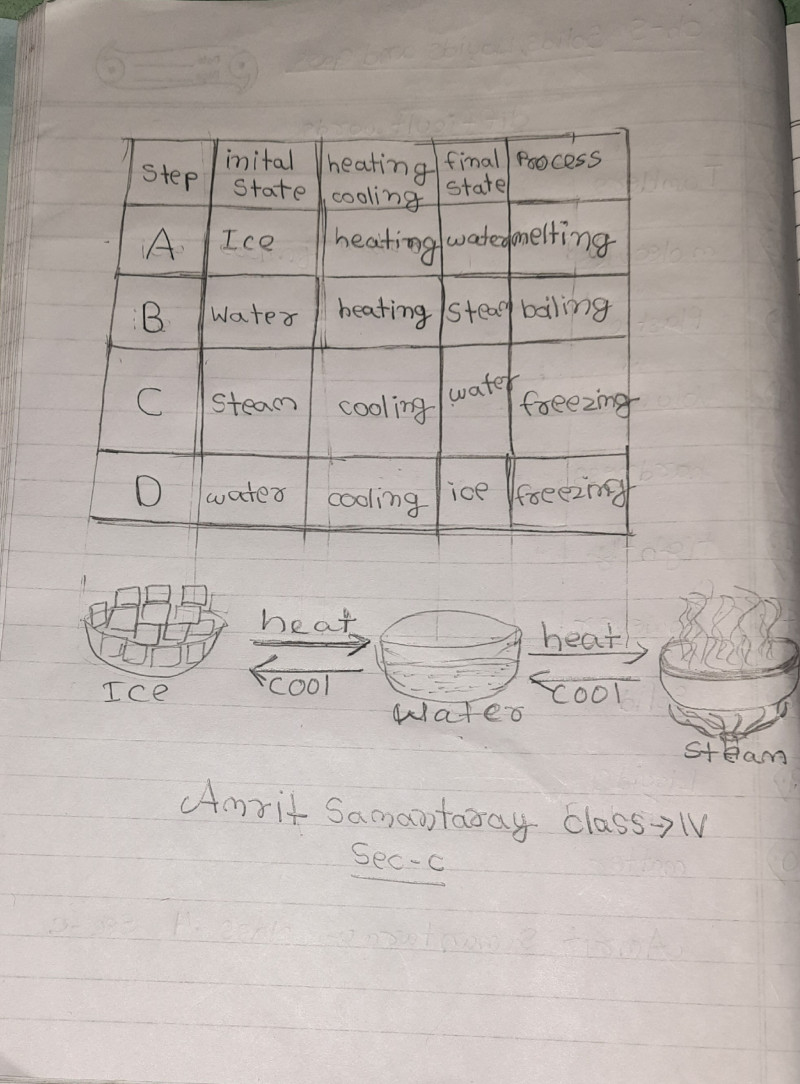 Step inital State heating cooling final state Process
A Ice heating water melting
B Water heating Steam boiling
C Steam cooling water freezing
D water cooling ice freezing
heat heat
cool cool
Ice Water Steam
Amrit Samantaray Class→IV
Sec-C